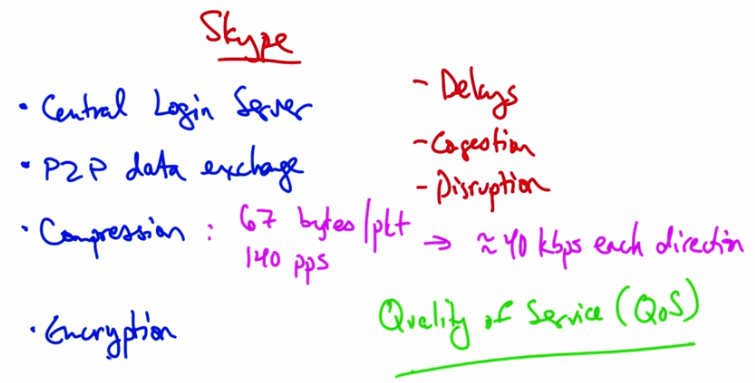 Skype
• Central Login Server
• P2P data exchange
• Compression : 67 bytes/pkt
140 pps → ≈ 40 kbps each direction
• Encryption
- Delays
- Cogestion
- Disruption
Quality of Service (QoS)